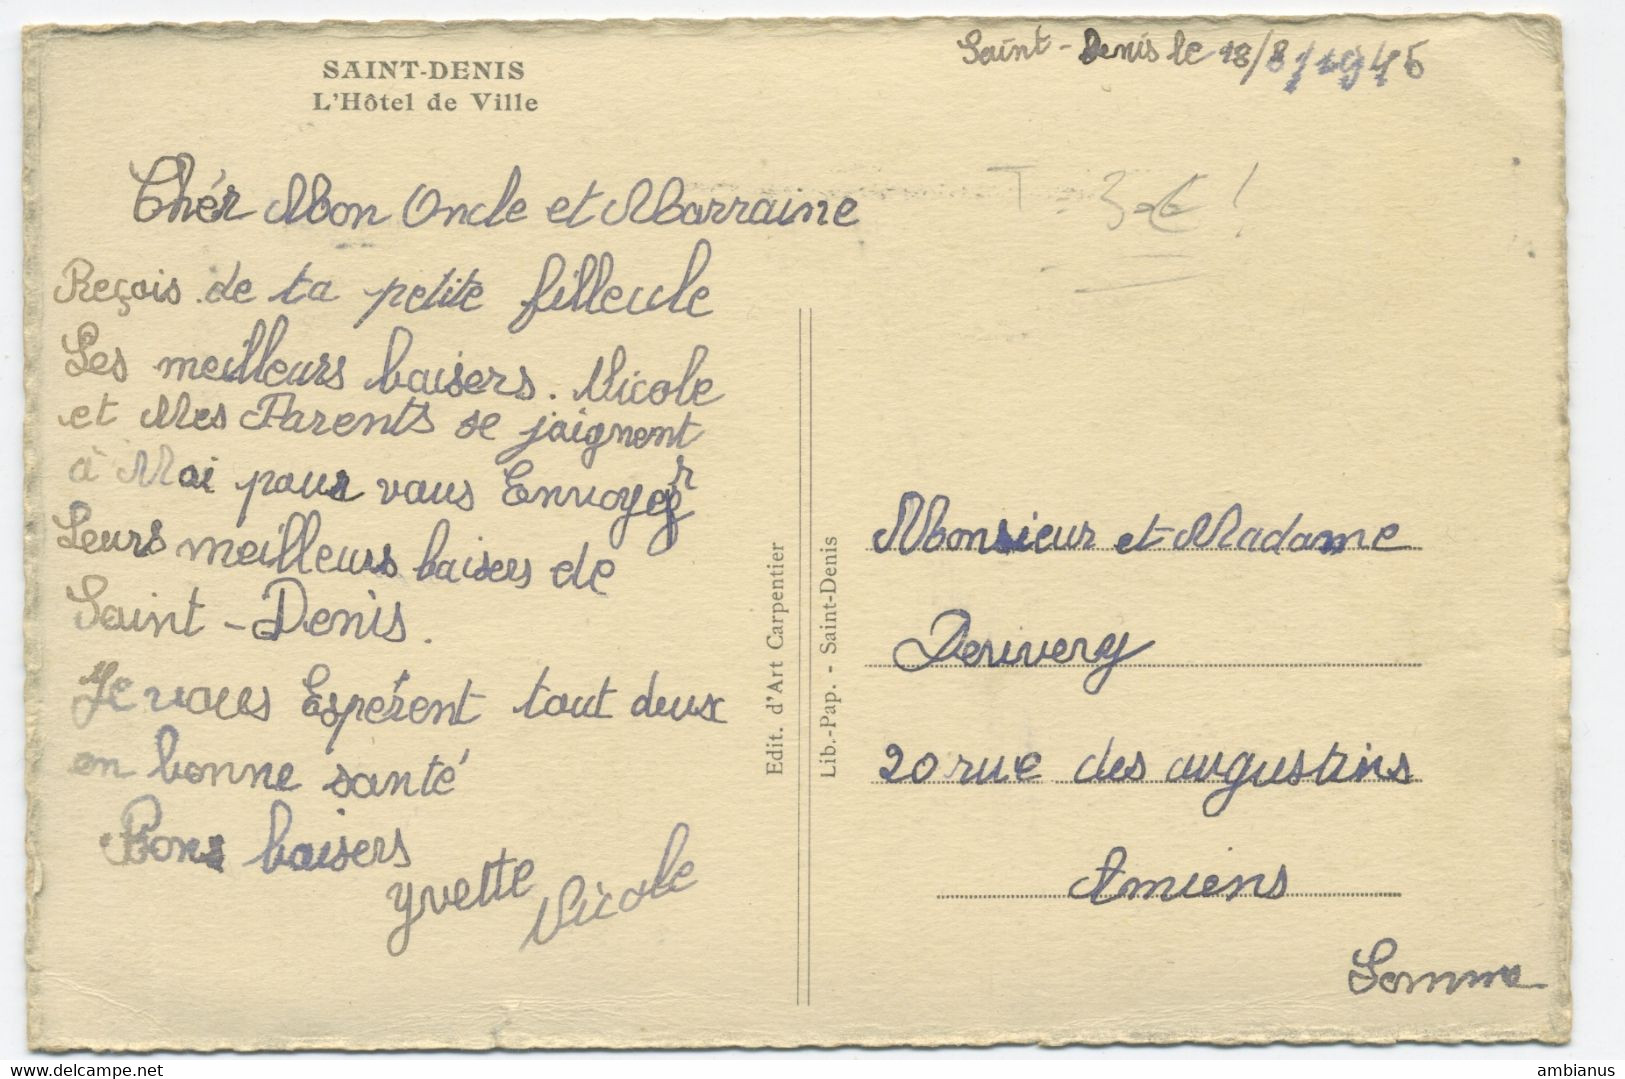 SAINT-DENIS
L'Hôtel de Ville
Saint-Denis le 18/8/1945
Chér Mon Oncle et Marraine
Reçois de ta petite filleule
Les meilleurs baisers. Nicole
et Mes Parents se joignent
à Moi pour vous Envoyer
Leurs meilleurs baisers de
Saint-Denis.
Je vous Espérent tout deux
en bonne santé
Bons baisers
yvette Nicole
Edit. d'Art Carpentier
Lib.-Pap. - Saint-Denis
T. 3€!
Monsieur et Madame
20 rue des augustins
Amiens
Somme
www.delcampe.net
ambianus